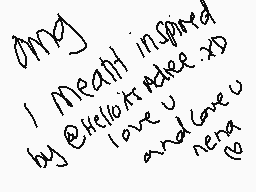 omg
I meant inspired
by @HelloitsAdree.xD
love u
and love u
nena ♡